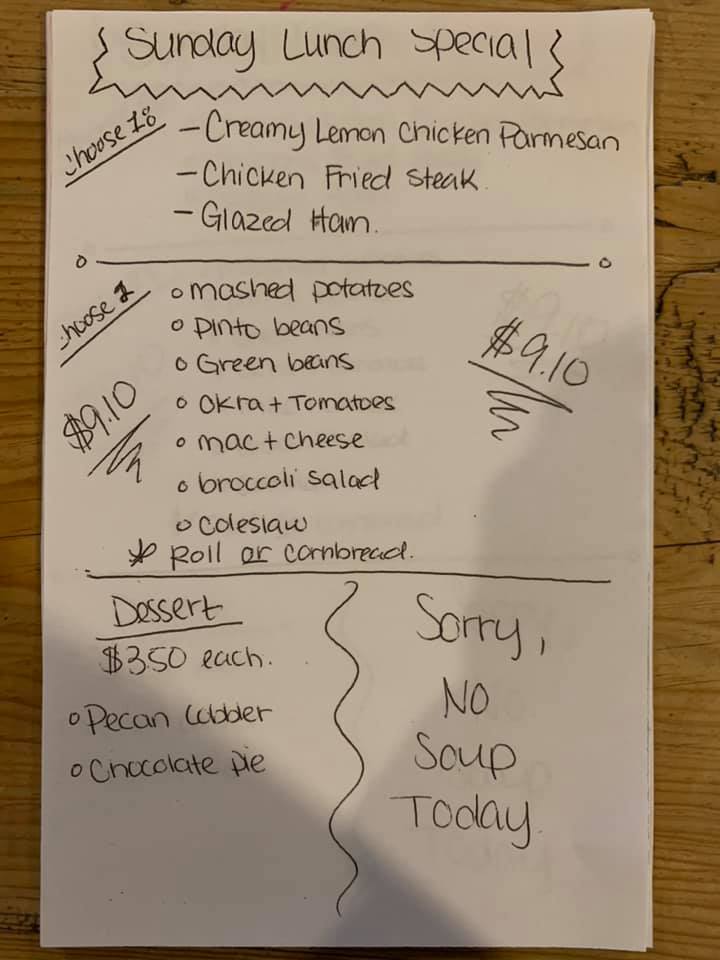 Sunday Lunch Special
Choose 1:
- Creamy Lemon Chicken Parmesan
- Chicken Fried Steak
- Glazed Ham.
Choose 2
o mashed potatoes
o pinto beans
o Green beans
o Okra + Tomatoes
o mac + cheese
o broccoli salad
o coleslaw
* Roll or cornbread.
$9.10
$9.10
Dessert
$3.50 each.
o Pecan Cobbler
o Chocolate pie
Sorry,
NO
Soup
Today.